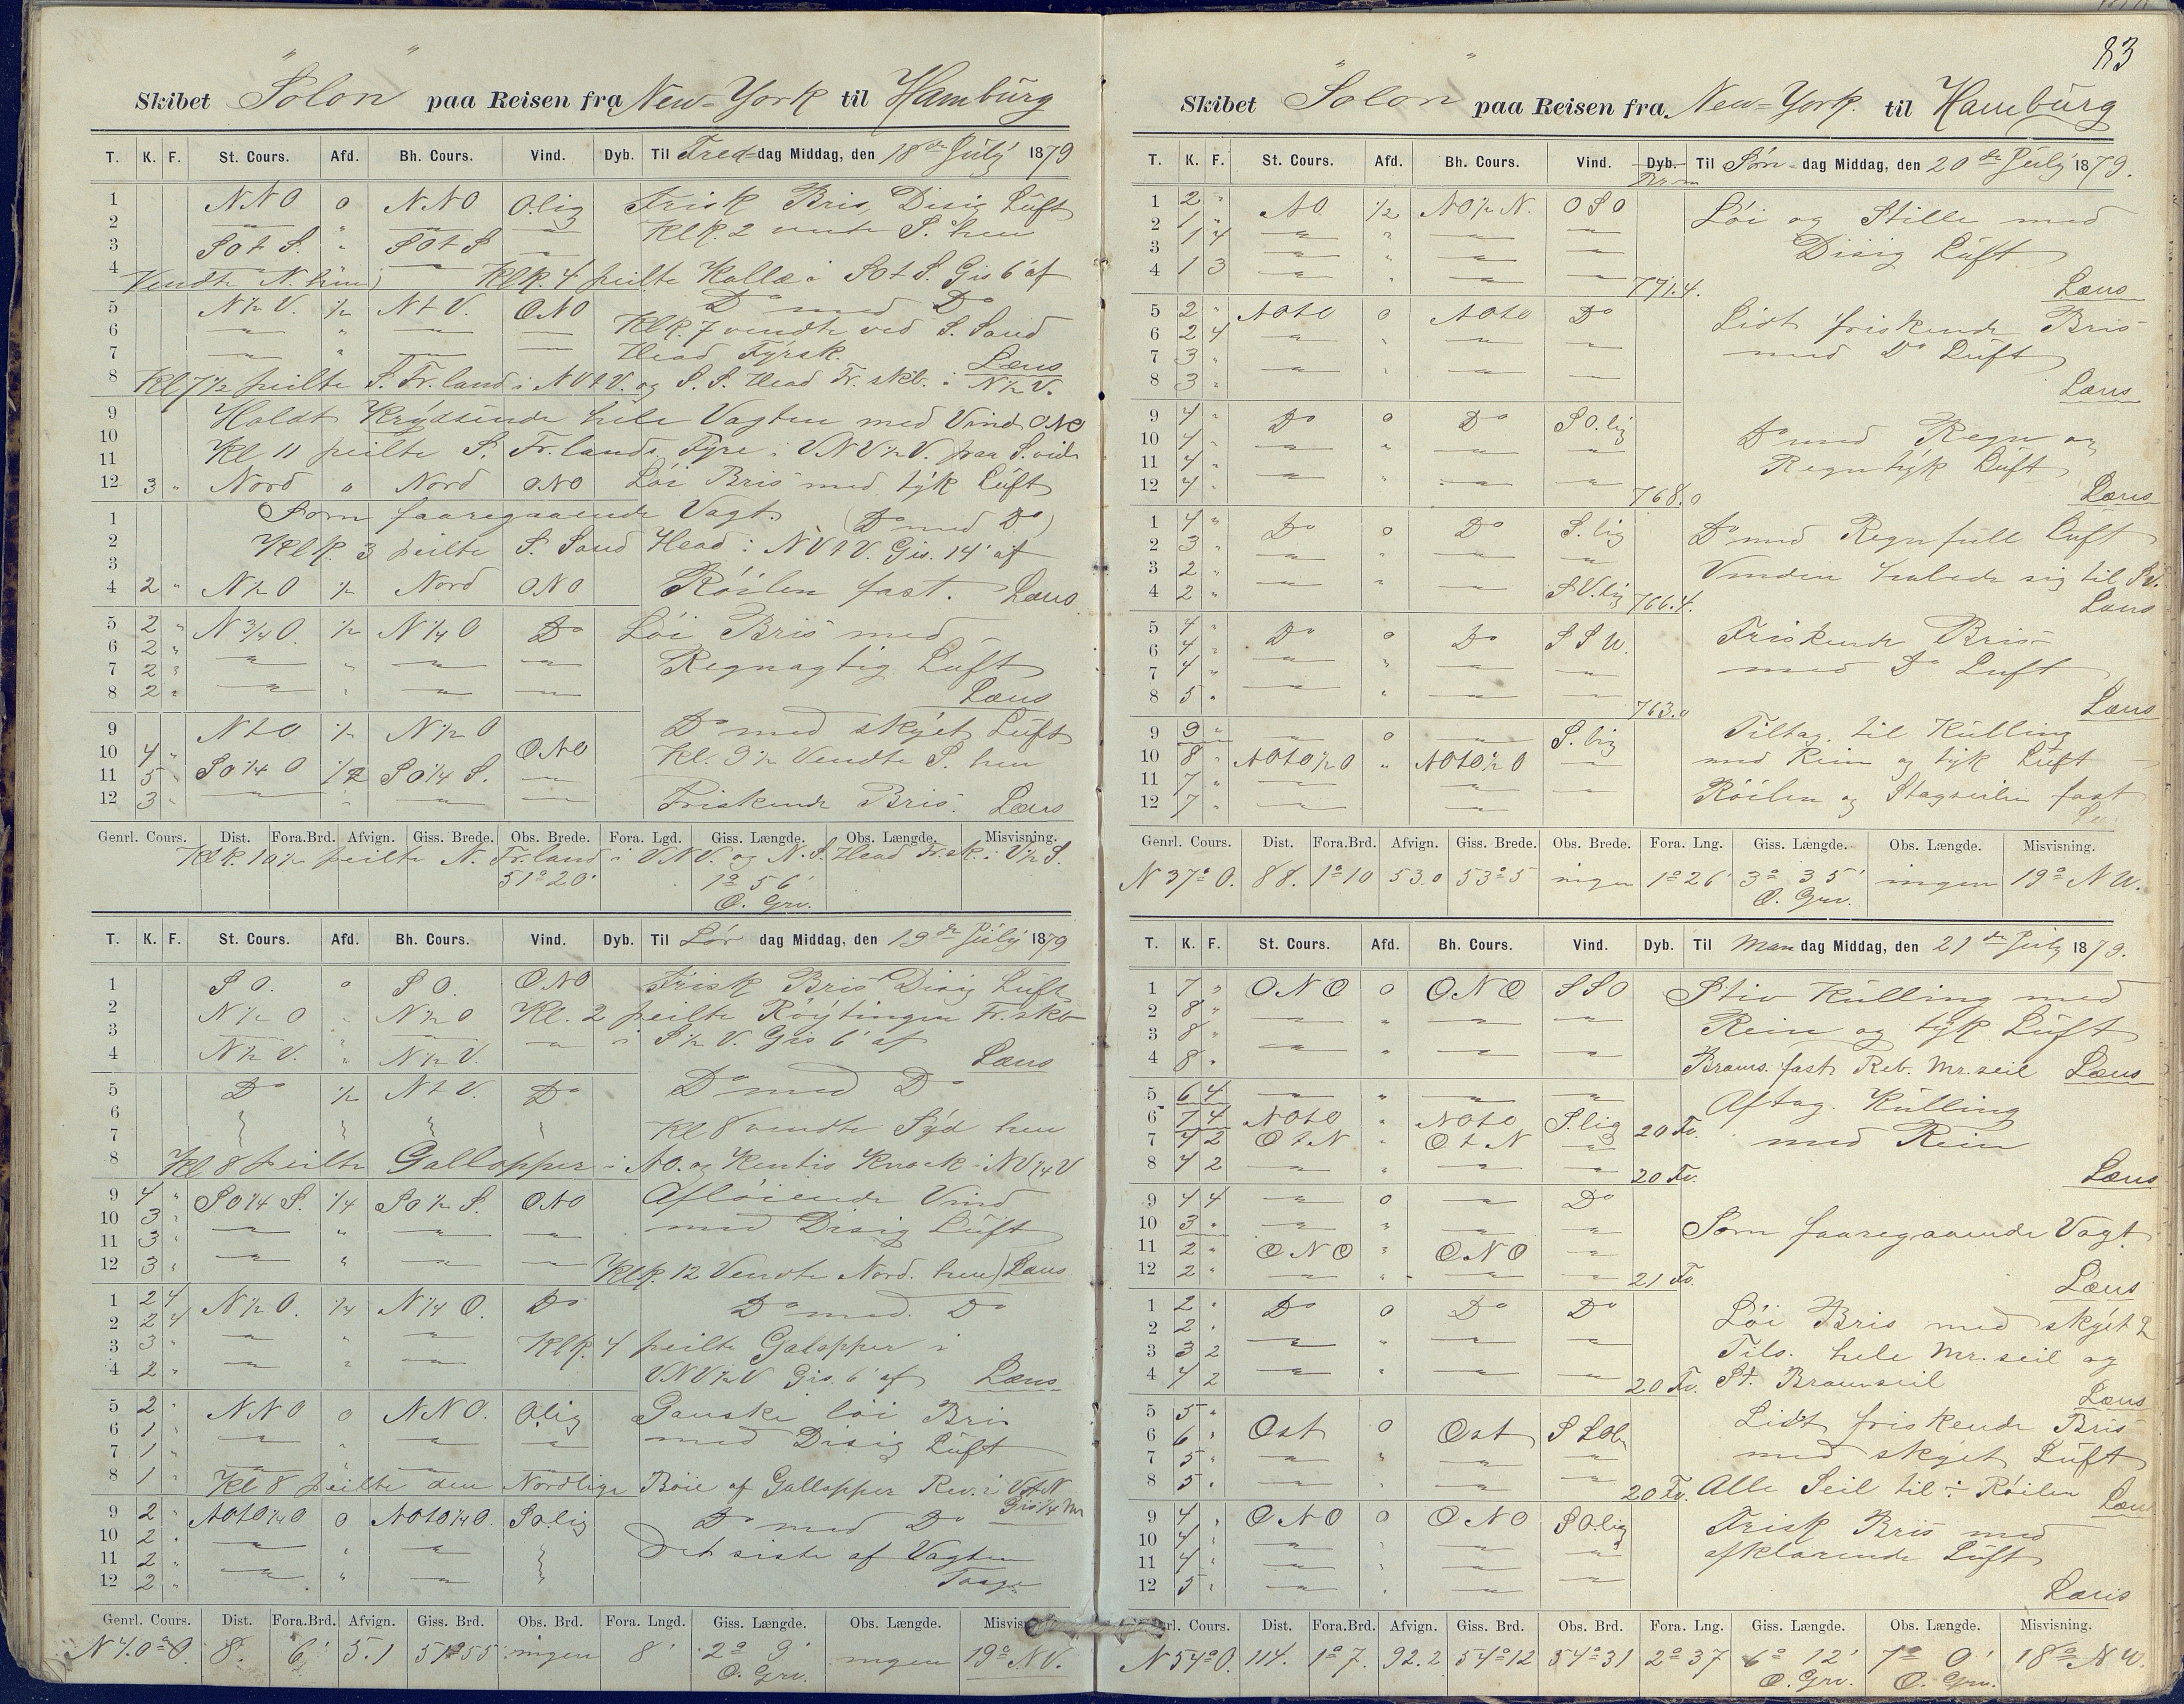 Skibet "Solon" paa Reisen fra New=York til Hamburg
T. K. F. St. Cours. Afd. Bh. Cours. Vind. Dyb. Til Fredag Middag, den 18de July 1879
1 NNO 0 NNO O.lig Frisk Bris, Disig Luft
2 Klk. 2 vendte S. hen
3 SOtS. " SOtS
4 Vendte N. hen) Klk. 4 peilte i SOtS. Gis 6' af
5 N½V. ½ NtV. ONO Do med Do
6 Klk. 7 vendte ved S. Sand
7 Head Fyrsk. Læns
8 Kl 7½ peilte S. Fr.land i NVtV. og S. S. Head Fr. skb. i N½V.
9 Holdt Krydsende hele Vagten med Vind ONO
10
11 Kl 11 peilte S. Fr.lands Fyre i VNV½V.
12 3 " Nord 0 Nord ONO Löi Bris med tyk Luft
1 Som faaregaaende Vagt. (Do med Do)
2 Klk. 3 peilte S. Sand Head i NVtV. Gis. 14' af
3
4 2 " N½O ½ Nord ONO Röilen fast. Læns
5 2 " N¾O. ½ N¼O Do Löi Bris med
6 2 "
7 2 " Regnagtig Luft
8 2 " Læns
9 NtO ½ N½O Do med skyet Luft
10 4 " ONO Kl. 9½ Vendte S. hen
11 5 SO¼O ½ SO¼S.
12 3 " Friskende Bris. Læns
Genrl. Cours. Dist. Fora.Brd. Afvign. Giss. Brede. Obs. Brede. Fora. Lgd. Giss. Længde. Obs. Længde. Misvisning.
Klk. 10½ peilte N. Fr.land i VNV. og N.S. Head Fr.sk. i V½S.
51°20' 1° 56'
O. Grv.
T. K. F. St. Cours. Afd. Bh. Cours. Vind. Dyb. Til Lör dag Middag, den 19de July 1879
1 SO. 0 SO. ONO Frisk Bris Disig Luft
2 N½O " N½O Kl. 2 peilte Fr.skb
3 i S½V. Gis 6' af
4 N½V. " N½V. Læns
5 Do ½ NtV. Do Do med Do
6
7 Kl 8 vendte Syd hen
8 Kl 8 peilte Gallopper i NO. og Kentis Knock i NV¼V
9 4 " SO¼S. ¼ SO½S. ONO Aflöiende Vind
10 3 " med Disig Luft
11 3 "
12 3 " Klk. 12 Vendte Nord. hen) Læns
1 2 4 N½O. ¼ N¼O. Do Do med. Do
2 2 4
3 3 " Klk. 4 peilte Galopper i
4 2 " VNV½V Gis. 6' af Læns
5 2 " NNO 0 NNO. O.lig Ganske löi Bris
6 1 " med Disig Luft
7 1 "
8 1 " Kl 8 peilte den Nordlige Böie af Gallopper Rev. i VtN
9 2 " NOtO¼O 0 NOtO¼O. SO.lig Do med Do Gis ¼ M
10 2 " Det siste af Vagten
11 2 "
12 2 " Taage
Genrl. Cours. Dist. Fora.Brd. Afvign. Giss. Brd. Obs. Brd. Fora. Lngd. Giss. Længde. Obs. Længde.
N40°O. 8. 6' 5.1 51°55 ingen 8' 2° 9' ingen 19° NV.
O. Grv.
83
Skibet "Solon" paa Reisen fra New=York. til Hamburg
T. K. F. St. Cours. Afd. Bh. Cours. Vind. Dyb. Til Sön dag Middag, den 20de July 1879.
1 2 " NO. ½ NO½N. OSO Löi og Stille med
2 1 "
3 1 4 Disig Luft
4 1 3 771.4. Læns
5 2 " NOtO 0 NOtO Do Lidt friskende Bris
6 2 4
7 3 " med Do Luft
8 3 " Læns
9 4 " Do 0 Do SO.lig Do med Regn og
10 4 "
11 4 " Regntyk Luft
12 4 " 768.0 Læns
1 4 " Do 0 Do S.lig Do med Regnfull Luft
2 3 "
3 2 " Vinden sig til SV.
4 2 " S.V.lig 766.4. Læns
5 4 " Do 0 Do SSW. Friskende Bris
6 4 "
7 4 " med Do Luft
8 5 " 763.0 Læns
9 9 " 0 S.lig Tiltag. til Kulling
10 8 " NOtO½O " NOtO½O med Rein og tyk Luft
11 7 "
12 7 " Röilen og Stagseilen fast
Genrl. Cours. Dist. Fora.Brd. Afvign. Giss. Brede. Obs. Brede. Fora. Lng. Giss. Længde. Obs. Længde. Misvisning.
N37°O. 88. 1°10 53.0 53°5 ingen 1°26' 3° 35' ingen 19° NW.
O. Grv.
T. K. F. St. Cours. Afd. Bh. Cours. Vind. Dyb. Til Man dag Middag, den 21de July 1879.
1 7 " ONO 0 ONO SSO Stiv Kulling med
2 8 "
3 8 " Rein og tyk Luft
4 8 " Brams. fast Reb. Mr.seil Læns
5 6 4 Aftag. Kulling
6 7 4 NOtO " NOtO S.lig 20 Fv.
7 4 2 OtN " OtN med Rein
8 4 2 20 Fv. Læns
9 4 4 0 Do
10 3 " Som faaregaaende Vagt
11 2 " ONO " ONO
12 2 " 21 Fv. Læns
1 2 " Do 0 Do Do Löi Bris med skyet L
2 2 "
3 3 2 Tils. hele Mr.seil og
4 4 2 20 Fv. St. Bramseil Læns
5 5 " Lidt friskende Bris
6 6 " Ost 0 Ost
7 5 " med skyet Luft
8 5 " 20 Fv. Alle Seil til ÷ Röilen Læns
9 4 " ONO 0 ONO SO.lig Frisk Bris med
10 4 "
11 4 " afklarende Luft
12 5 " Læns
Cours. Dist. Fora.Brd. Afvign. Giss. Brd. Obs. Brd. Fora. Lng. Giss. Længde. Obs. Længde. Misvisning.
N54°O. 114. 1°7. 92.2 54°12 54°31 2°37 6° 12' 7° 0' 18° NW.
O. Grv. O. Grv.